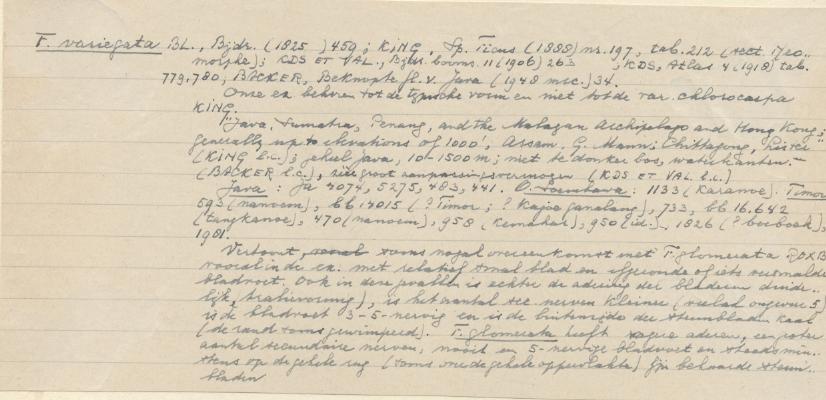 F. variegata BL., Bijdr. (1825) 459; KING, Sp. Ficus (1888) nr. 197, tab. 212 (sect. Neo..
morphe); KDS ET VAL., Bijdr. booms. 11 (1906) 263 ; KDS, Atlas 4 (1918) tab.
779-780; BACKER, Beknopte fl. v. Java (1948 msc.) 34.
Onze ex behoren tot de typische vorm en niet tot de var. chlorocarpa
KING.
"Java, Sumatra, Penang, and the Malayan Archipelago and Hong Kong;
generally up to elevations of 1000', Assam. G. Mann; Chittagong,
(KING l.c.); geheel Java, 10-1500 m; niet te donker bos, waterkanten,-
(BACKER l.c.), zeer groot aanpassingsvermogen (KDS ET VAL. l.c.)
Java : ja 4074, 5275, 483, 441. O. Soembawa: 1133 (Karawoe). Timor
593 (manoem), bb 14015 (? Timor; ? Kajoe ganalang), 733, bb. 16.642
(tangkanoe), 470 (manoem), 958 (Kemahak), 950 (id.), 1826 (? boeboek),
1981.
Vertoont, soms nogal overeenkomst met F. glomerata ROXB
vooral in de ex. met relatief smal blad en afgeronde of iets versmalde
bladvoet. Ook in deze gevallen is echter de adering der bladeren duide..
lijk, is het aantal sec. nerven kleiner (veelal ongeveer 5)
is de bladvoet 3-5-nervig en is de buitenzijde der steunbladen kaal
(de rand soms gewimperd). F. glomerata heeft vagere aderen, een groter
aantal secundaire nerven, nooit een 5-nervige bladvoet en steeds min..
stens op de gehele rug (soms over de gehele oppervlakte) fijn behaarde steun..
bladen